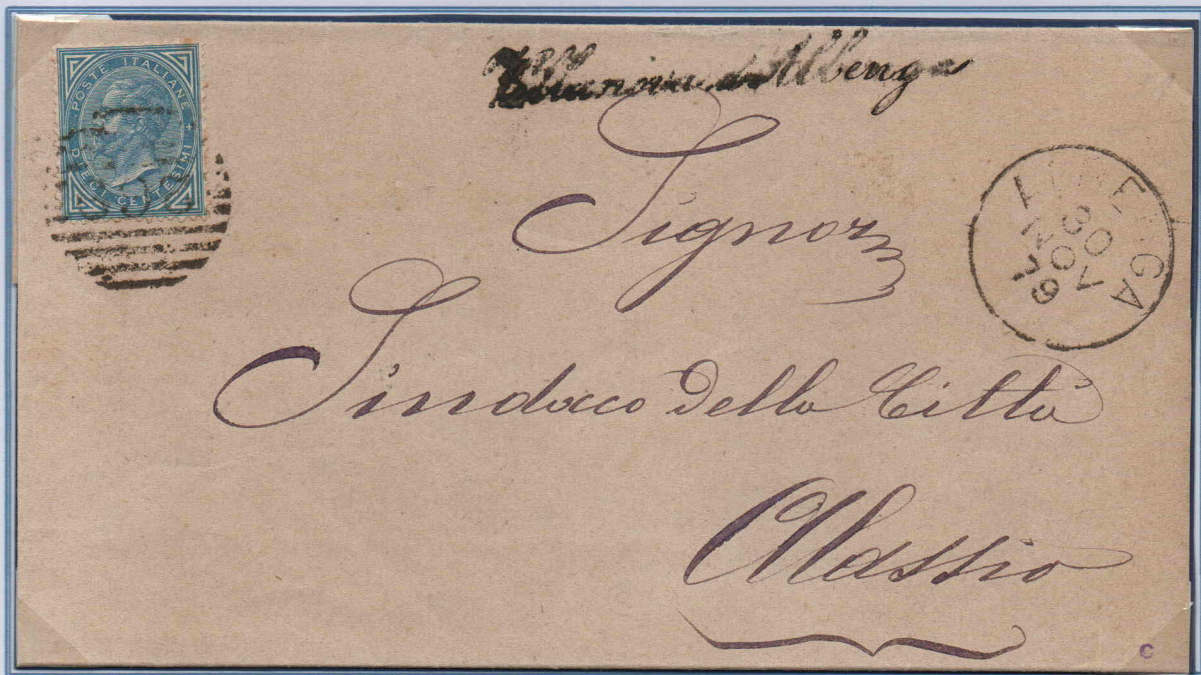 POSTE ITALIANE
DIECI CENTESIMI
Villanova d'Albenga
ALBENGA
30
NOV
79
Signor
Sindaco della Città
Alassio
C